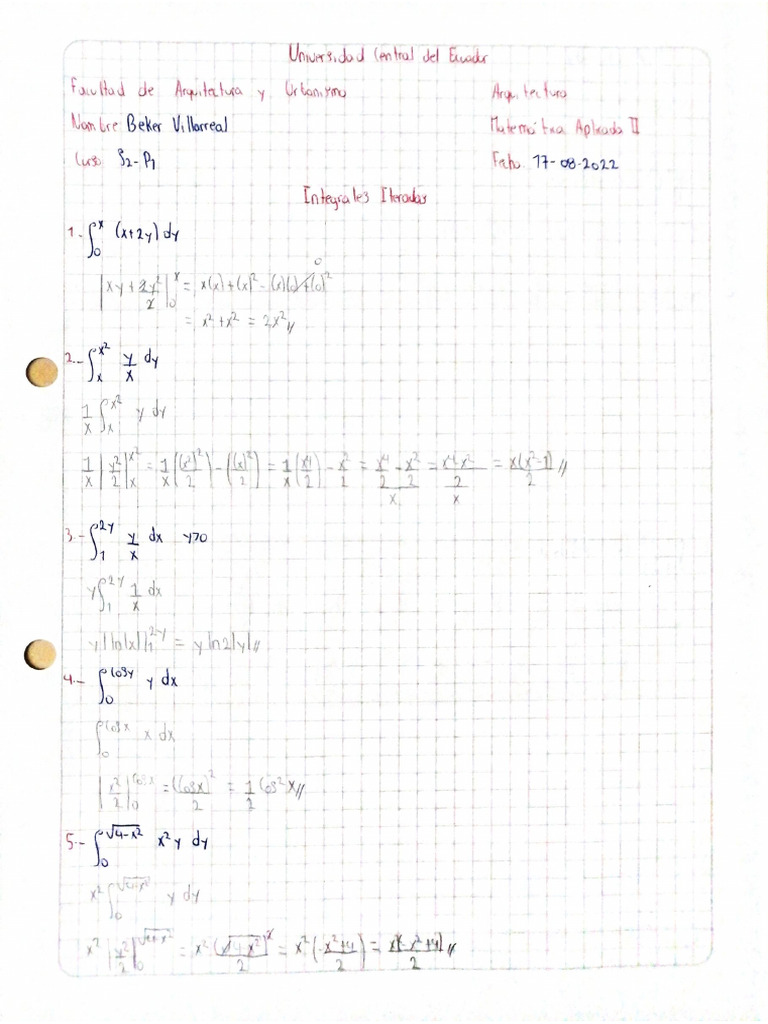 Universidad Central del Ecuador
Facultad de Arquitectura y Urbanismo Arquitectura
Nombre Beker Villarreal Matemática Aplicada II
Curso: S2-P1 Fecha 17-08-2022
Integrales Iteradas
1.- ∫₀ˣ (x+2y) dy
|xy + 2y²/2|₀ˣ = x(x)+(x)² - (x)(0)+(0)² 0
= x²+x² = 2x²//
2.- ∫ₓ^x² y/x dy
1/x ∫ₓ^x² y dy
1/x |y²/2|ₓ^x² = 1/x ((x²)²/2) - ((x)²/2) = 1/x (x⁴/2) - x²/2 = (x⁴/2 - x²/2)/x = ((x⁴-x²)/2)/x = x(x²-1)/2 //
3.- ∫₁^2y y/x dx y>0
y ∫₁^2y 1/x dx
y |ln|x||₁^2y = y ln2|y|//
4.- ∫₀^cosy y dx
∫₀^cosx x dx
|x²/2|₀^cosx = (cosx)²/2 = 1/2 cos²x//
5.- ∫₀^√(4-x²) x²y dy
x² ∫₀^√(4-x²) y dy
x² |y²/2|₀^√(4-x²) = x² (√(4-x²))²/2 = x² (-x²+4)/2 = x²(-x²+4)/2 //